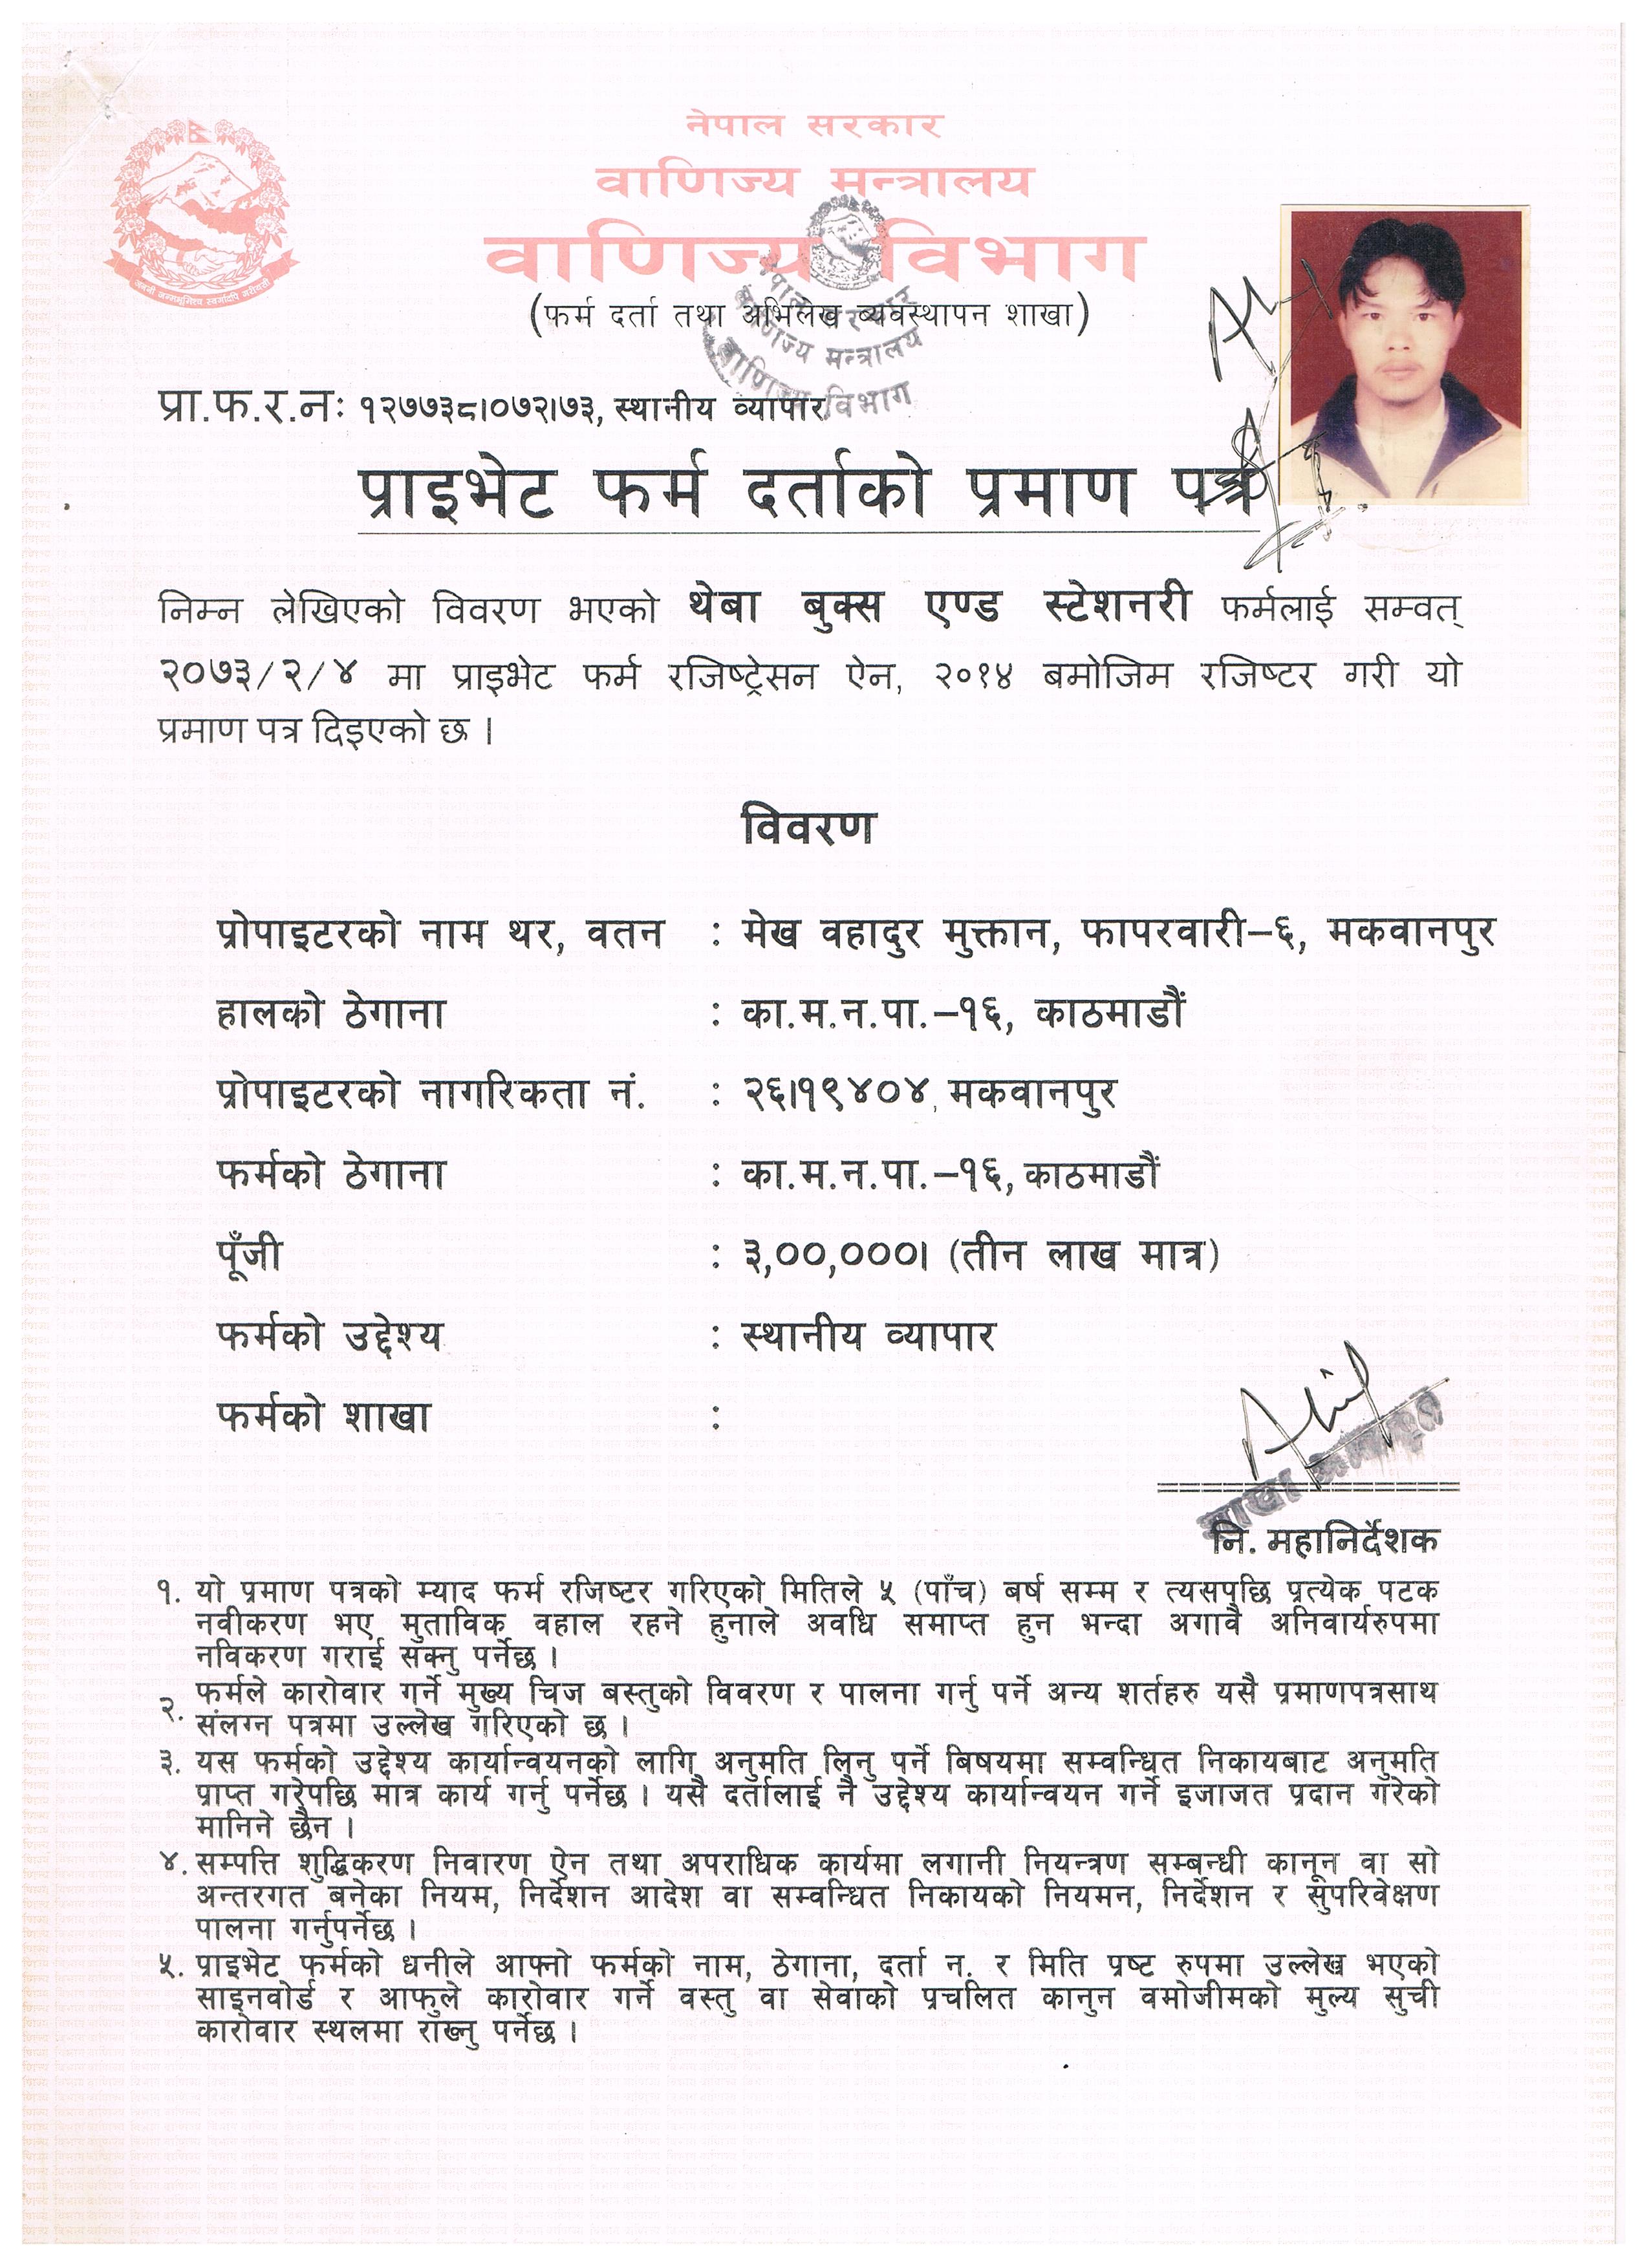 नेपाल सरकार
वाणिज्य मन्त्रालय
वाणिज्य विभाग
(फर्म दर्ता तथा अभिलेख व्यवस्थापन शाखा)
जननी जन्मभूमिश्च स्वर्गादपि गरीयसी
नेपाल सरकार
वाणिज्य मन्त्रालय
वाणिज्य विभाग
प्रा.फ.र.नः १२७७३८।०७२।७३, स्थानीय व्यापार
प्राइभेट फर्म दर्ताको प्रमाण पत्र
निम्न लेखिएको विवरण भएको थेबा बुक्स एण्ड स्टेशनरी फर्मलाई सम्वत्
२०७३/२/४ मा प्राइभेट फर्म रजिष्ट्रेसन ऐन, २०१४ बमोजिम रजिष्टर गरी यो
प्रमाण पत्र दिइएको छ ।
विवरण
प्रोपाइटरको नाम थर, वतन : मेख वहादुर मुक्तान, फापरवारी–६, मकवानपुर
हालको ठेगाना : का.म.न.पा.–१६, काठमाडौं
प्रोपाइटरको नागरिकता नं. : २६।१९४०४, मकवानपुर
फर्मको ठेगाना : का.म.न.पा.–१६, काठमाडौं
पूँजी : ३,००,०००। (तीन लाख मात्र)
फर्मको उद्देश्य : स्थानीय व्यापार
फर्मको शाखा :
शाखा
नि. महानिर्देशक
१. यो प्रमाण पत्रको म्याद फर्म रजिष्टर गरिएको मितिले ५ (पाँच) बर्ष सम्म र त्यसपछि प्रत्येक पटक
नवीकरण भए मुताविक वहाल रहने हुनाले अवधि समाप्त हुन भन्दा अगावै अनिवार्यरुपमा
नविकरण गराई सक्नु पर्नेछ ।
२. फर्मले कारोवार गर्ने मुख्य चिज बस्तुको विवरण र पालना गर्नु पर्ने अन्य शर्तहरु यसै प्रमाणपत्रसाथ
संलग्न पत्रमा उल्लेख गरिएको छ ।
३. यस फर्मको उद्देश्य कार्यान्वयनको लागि अनुमति लिनु पर्ने बिषयमा सम्वन्धित निकायबाट अनुमति
प्राप्त गरेपछि मात्र कार्य गर्नु पर्नेछ । यसै दर्तालाई नै उद्देश्य कार्यान्वयन गर्ने इजाजत प्रदान गरेको
मानिने छैन ।
४. सम्पत्ति शुद्धिकरण निवारण ऐन तथा अपराधिक कार्यमा लगानी नियन्त्रण सम्बन्धी कानून वा सो
अन्तरगत बनेका नियम, निर्देशन आदेश वा सम्वन्धित निकायको नियमन, निर्देशन र सुपरिवेक्षण
पालना गर्नुपर्नेछ ।
५. प्राइभेट फर्मको धनीले आफ्नो फर्मको नाम, ठेगाना, दर्ता न. र मिति प्रष्ट रुपमा उल्लेख भएको
साइनवोर्ड र आफुले कारोवार गर्ने वस्तु वा सेवाको प्रचलित कानुन वमोजीमको मुल्य सुची
कारोवार स्थलमा राख्नु पर्नेछ ।